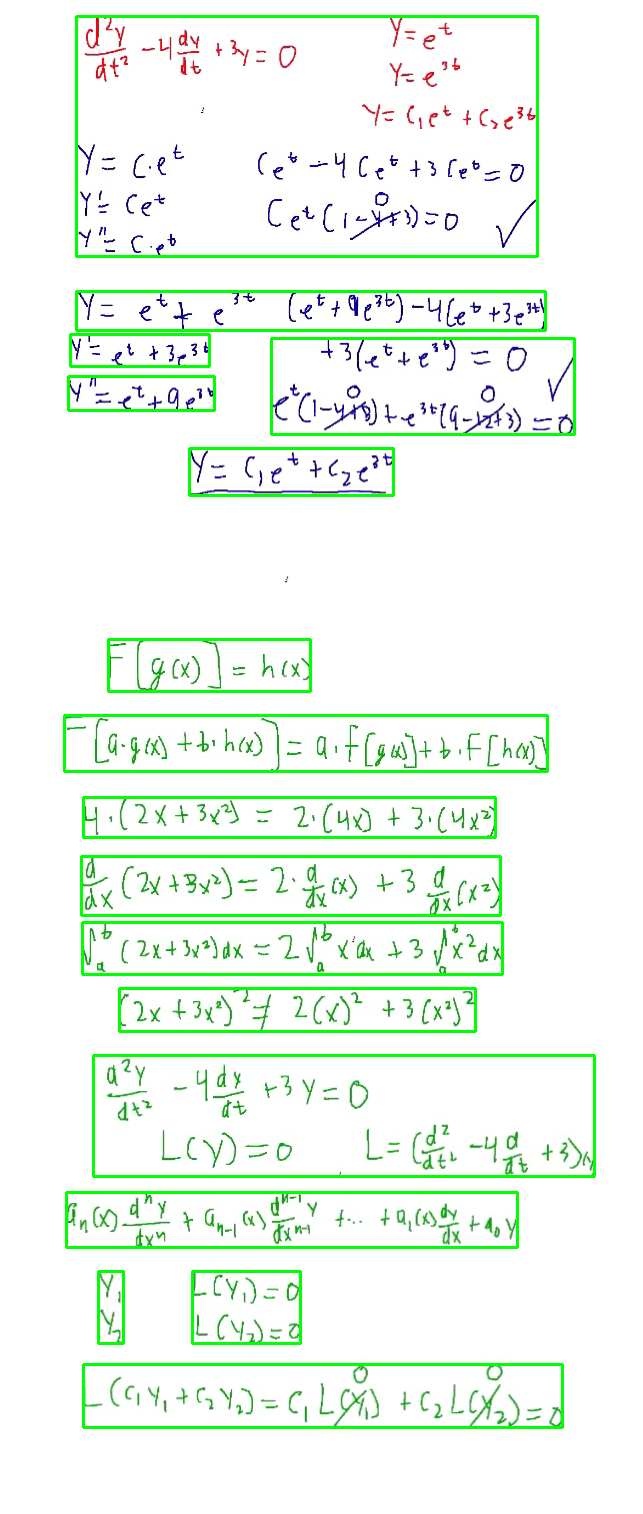 d²y/dt² - 4 dy/dt + 3y = 0
y = e^t
y = e^{3t}
y = C₁e^t + C₂e^{3t}
y = C·e^t
y' = Ce^t
y'' = C·e^t
Ce^t - 4Ce^t + 3Ce^t = 0
Ce^t(1-4+3) = 0 ✓
0
y = e^t + e^{3t}
(e^t + 9e^{3t}) - 4(e^t + 3e^{3t})
y' = e^t + 3e^{3t}
+3(e^t + e^{3t}) = 0 ✓
y'' = e^t + 9e^{3t}
0 0
e^t(1-4+3) + e^{3t}(9-12+3) = 0
y = C₁e^t + C₂e^{3t}
F[g(x)] = h(x)
F[a·g(x) + b·h(x)] = a·F[g(x)] + b·F[h(x)]
4·(2x + 3x²) = 2·(4x) + 3·(4x²)
d/dx (2x + 3x²) = 2·d/dx(x) + 3 d/dx(x²)
∫_a^b (2x + 3x²)dx = 2∫_a^b x dx + 3∫_a^b x² dx
(2x + 3x²)² ≠ 2(x)² + 3(x²)²
d²y/dt² - 4 dy/dt + 3y = 0
L(y) = 0
L = (d²/dt² - 4 d/dt + 3)y
a_n(x) d^n y/dx^n + a_{n-1}(x) d^{n-1}y/dx^{n-1} + ... + a₁(x) dy/dx + a₀y
y₁ L(y₁) = 0
y₂ L(y₂) = 0
0 0
L(C₁y₁ + C₂y₂) = C₁L(y₁) + C₂L(y₂) = 0